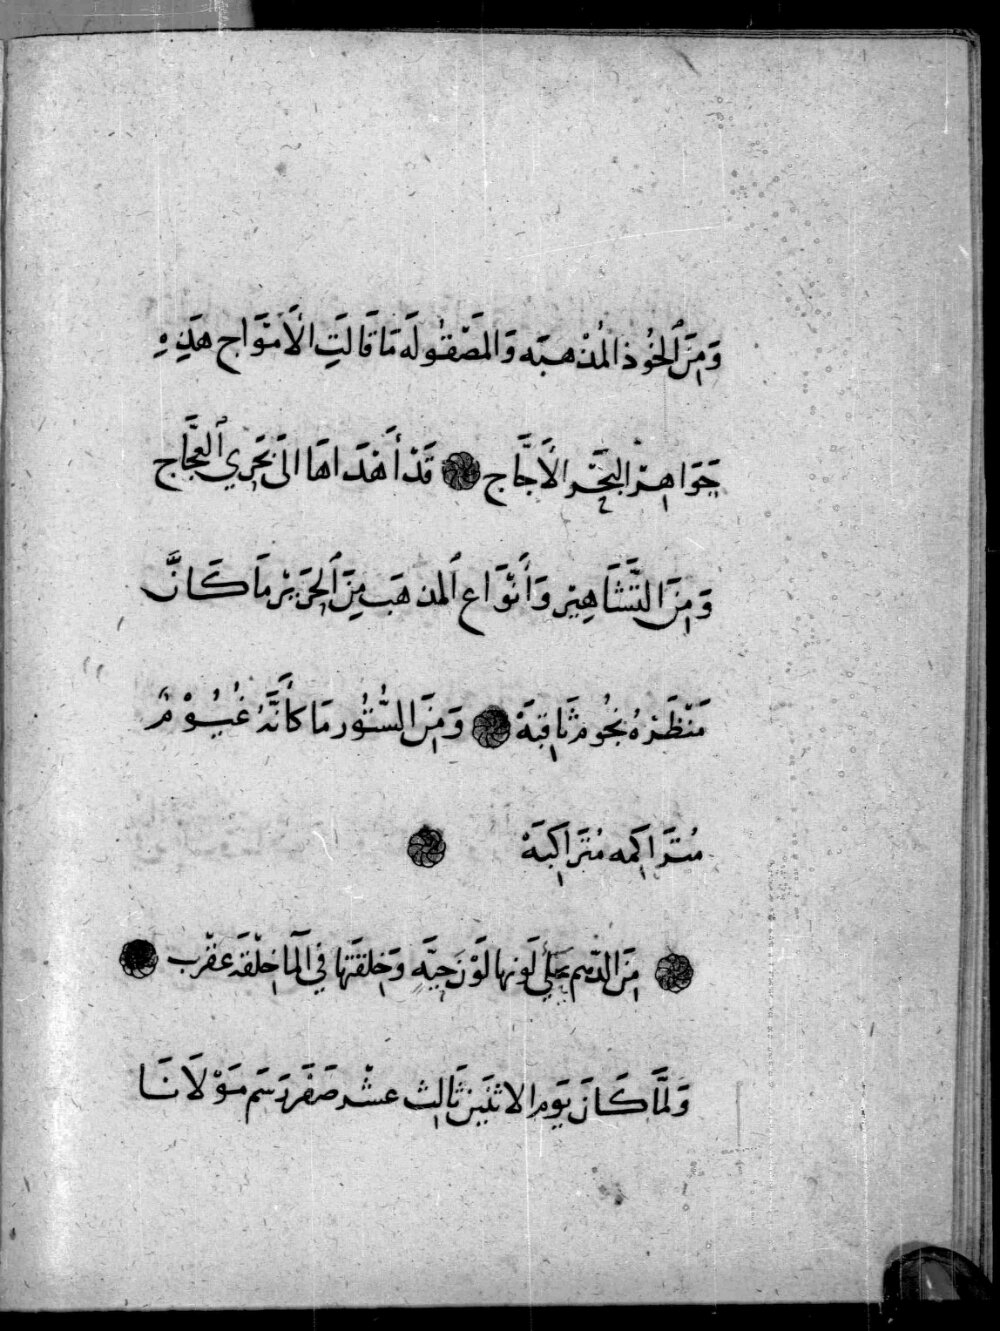 وَمِنَ ٱلخُوذ المُذْهبَه وَالمَصْقُولَه مَا قَالَتِ الأَمْوَاج هَذِهِ
جَوَاهِرْ البَحْر الأُجَّاج قَدْ أَهْدَاهَا الَى بَحَرِي ٱلعجَّاج
وَمِنَ التَّشَاهِيْر وَأَنْوَاع ٱلمذهَب مِنَ ٱلحَرَيْر مَا كَانَّ
مَنْظَرَهُ نُجُوم ثَاقِبَهْ وَمِنَ السُّتُور مَا كَأَنَّهُ غُيُوْمٌ
مُتَرَاكِمَه مُتَرَاكِبَهْ
مِنَ الدّهم لَونها لَوْنَ حِيَّه وَخِلقَتها فِي ٱلما خِلْقَه عقْرب
وَلَمَّا كَانَ يَوَم الاثنَينْ ثَالِث عشْر صَفَر رَسَم مَوْلَانَا